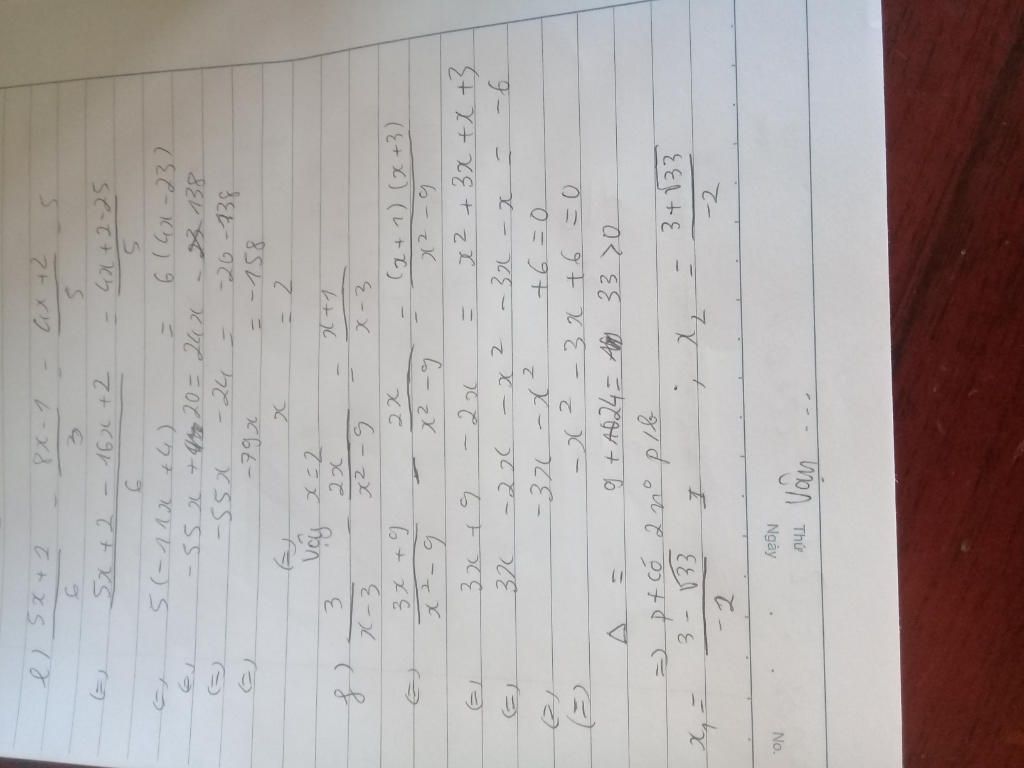 e) (5x+2)/6 - (8x-1)/3 = (4x+2)/5 - 5
(=) (5x+2-16x+2)/6 = (4x+2-25)/5
(=) 5(-11x+4) = 6(4x-23)
(=) -55x + 20 = 24x - 138
(=) -55x - 24 = -20-138
(=) -79x = -158
(=) x = 2
Vậy x=2
f) 3/(x-3) - 2x/(x²-9) = (x+1)/(x-3)
(=) (3x+9)/(x²-9) - 2x/(x²-9) = (x+1)(x+3)/(x²-9)
(=) 3x+9 - 2x = x²+3x+x+3
(=) 3x - 2x - x² - 3x - x = -6
(=) -3x - x² + 6 = 0
(=) -x² - 3x + 6 = 0
Δ = 9 + 24 = 33 > 0
=) pt có 2 no p/b
x₁ = (3-√33)/-2 ; x₂ = (3+√33)/-2
Vậy ...
Thứ
Ngày
No.